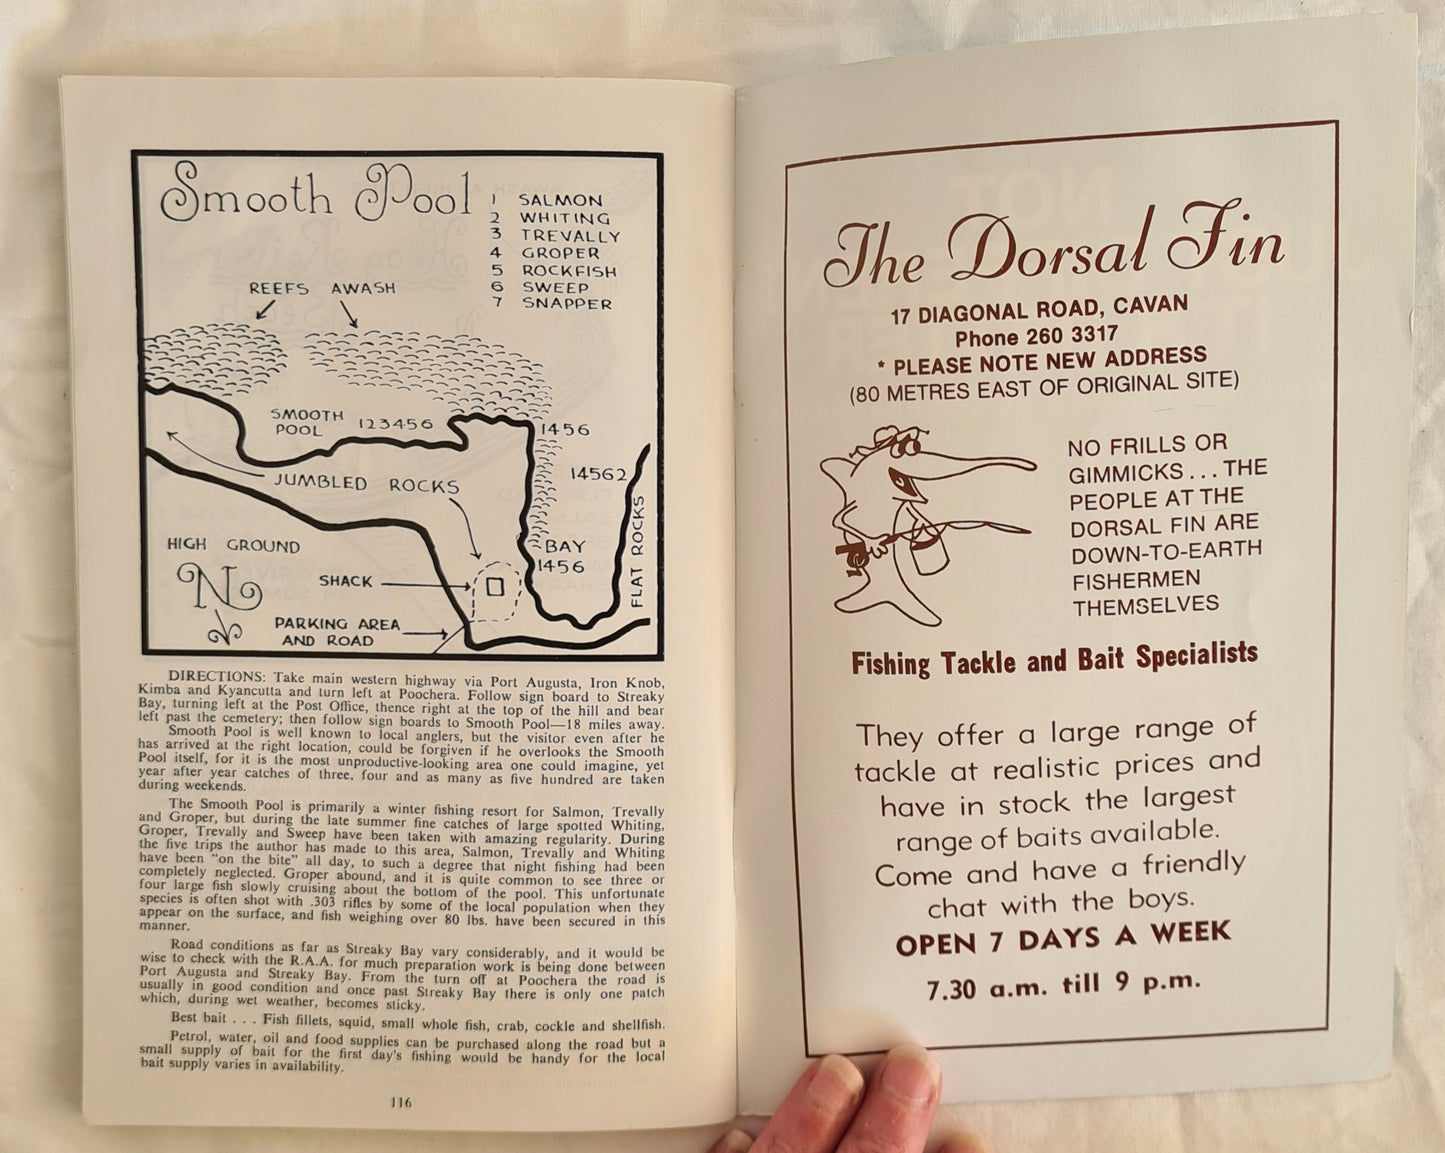 Smooth Pool
1 SALMON
2 WHITING
3 TREVALLY
4 GROPER
5 ROCKFISH
6 SWEEP
7 SNAPPER
REEFS AWASH
SMOOTH
POOL
123456
1456
14562
JUMBLED ROCKS
HIGH GROUND
N
BAY
1456
FLAT ROCKS
SHACK
PARKING AREA
AND ROAD
DIRECTIONS: Take main western highway via Port Augusta, Iron Knob,
Kimba and Kyancutta and turn left at Poochera. Follow sign board to Streaky
Bay, turning left at the Post Office, thence right at the top of the hill and bear
left past the cemetery; then follow sign boards to Smooth Pool—18 miles away.
Smooth Pool is well known to local anglers, but the visitor even after he
has arrived at the right location, could be forgiven if he overlooks the Smooth
Pool itself, for it is the most unproductive-looking area one could imagine, yet
year after year catches of three, four and as many as five hundred are taken
during weekends.
The Smooth Pool is primarily a winter fishing resort for Salmon, Trevally
and Groper, but during the late summer fine catches of large spotted Whiting,
Groper, Trevally and Sweep have been taken with amazing regularity. During
the five trips the author has made to this area, Salmon, Trevally and Whiting
have been "on the bite" all day, to such a degree that night fishing had been
completely neglected. Groper abound, and it is quite common to see three or
four large fish slowly cruising about the bottom of the pool. This unfortunate
species is often shot with .303 rifles by some of the local population when they
appear on the surface, and fish weighing over 80 lbs. have been secured in this
manner.
Road conditions as far as Streaky Bay vary considerably, and it would be
wise to check with the R.A.A. for much preparation work is being done between
Port Augusta and Streaky Bay. From the turn off at Poochera the road is
usually in good condition and once past Streaky Bay there is only one patch
which, during wet weather, becomes sticky.
Best bait . . . Fish fillets, squid, small whole fish, crab, cockle and shellfish.
Petrol, water, oil and food supplies can be purchased along the road but a
small supply of bait for the first day's fishing would be handy for the local
bait supply varies in availability.
116
The Dorsal Fin
17 DIAGONAL ROAD, CAVAN
Phone 260 3317
* PLEASE NOTE NEW ADDRESS
(80 METRES EAST OF ORIGINAL SITE)
NO FRILLS OR
GIMMICKS . . . THE
PEOPLE AT THE
DORSAL FIN ARE
DOWN-TO-EARTH
FISHERMEN
THEMSELVES
Fishing Tackle and Bait Specialists
They offer a large range of
tackle at realistic prices and
have in stock the largest
range of baits available.
Come and have a friendly
chat with the boys.
OPEN 7 DAYS A WEEK
7.30 a.m. till 9 p.m.